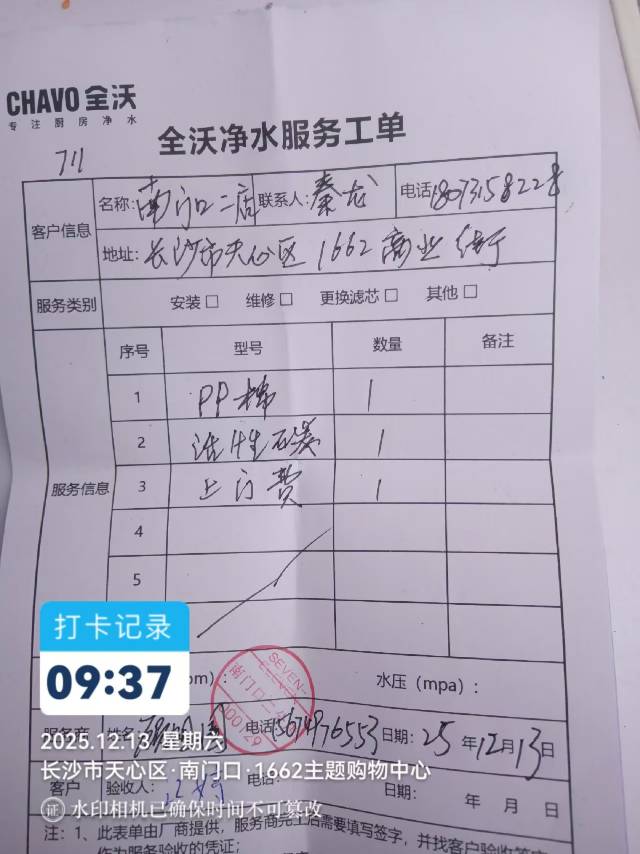 CHAVO 全沃
专注厨房净水
全沃净水服务工单
711
客户信息
名称：南门口二店 联系人：秦龙 电话18073158228
地址：长沙市天心区1662商业街
服务类别 安装□ 维修□ 更换滤芯□ 其他□
服务信息
序号 型号 数量 备注
1 PP棉 1
2 活性石炭 1
3 上门费 1
4
5
打卡记录
09:37
水压（mpa）：
SEVEN-ELEVEN
南门口二店
00149
服务商 姓名 电话15674976553 日期：25年12月13日
2025.12.13 星期六
长沙市天心区·南门口·1662主题购物中心
客户 验收人： 电话： 日期： 年 月 日
证 水印相机已确保时间不可篡改
注：1、此表单由厂商提供，服务商完工后需要填写签字，并找客户验收签字
作为服务验收的凭证；